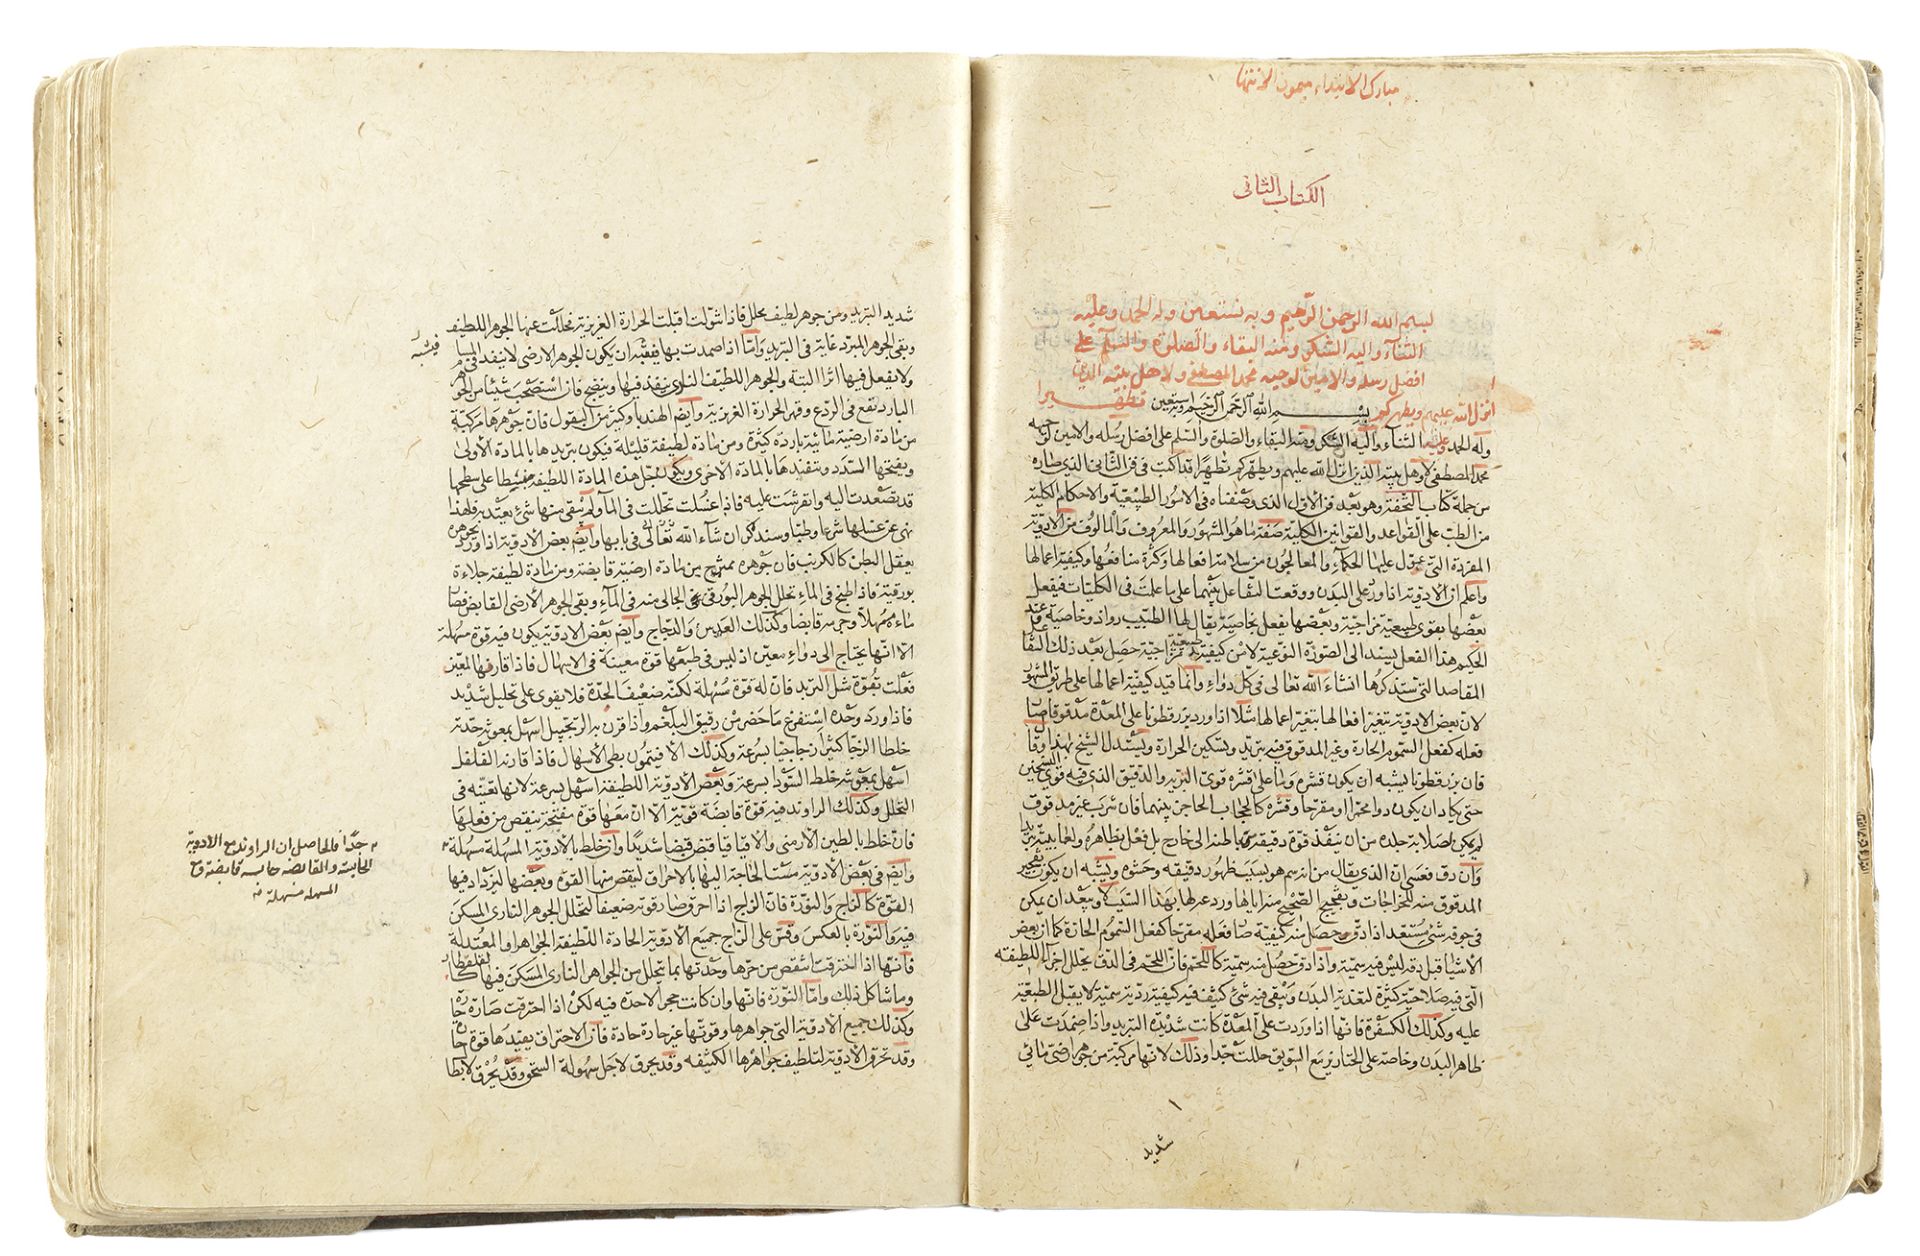 مبارك الابتداء ميمون الانتها
الكتاب الثانى
بسم الله الرحمن الرحيم وبه نستعين وله الحمد وعليه
الثناء واليه الشكر ومنه البقاء والصلوة والسلم على
افضل رسله والامين لوحيه محمد المصطفى ولاهل بيته الذين
انزل الله عليهم ويطهركم تطهيرا بسم الله الرحمن الرحيم وبه نستعين
وله الحمد وعليه الثناء واليه الشكر ومنه البقاء والصلوة والسلم على افضل رسله والامين لوحيه
محمد المصطفى ولاهل بيته الذين انزل الله عليهم ويطهركم تطهيرا فن الثانى الذى
من جملة كتاب التحفة وهو بعد فن الاول الذى وصفناه فى الامور الطبيعية والاحكام الكلية
من الطب على القواعد والقوانين الكلية صفة ما هو المشهور والمعروف والمالوف من الادوية
المفردة التى عليها الحكماء والمعالجون من سلامة افعالها وكثرة منافعها وكيفية اعمالها
واعلم ان الادوية اذا ورد على البدن ووقعت التفاعل بينهما على ما علمت فى الكليات فيفعل
بعضها بقوى طبيعية مزاجية وبعضها يفعل بخاصية يقال لها الطبيب دواء ذو خاصية وعند
الحكيم هذا الفعل يسند الى الصورة النوعية لا من كيفية مزاجية حصل بعد ذلك
المقاصد التى ستذكرها انشاء الله تعالى فى كل دواء وانما قيد كيفية اعمالها على طريق المشهور
لان بعض الادوية يتغير افعالها بتغير اعمالها مثلا اذا ورد بزرقطونا على المعدة مدقوقا صار
فعله كفعل السموم الحارة وغير المدقوق فيه تبريد وتسكين الحرارة ويستدل الشيخ بهذا وقال
فان بزرقطونا يشبه ان يكون قشره وما على قشره قوى التبريد والدقيق الذى فيه قوى التسخين
حتى يكاد ان يكون دوا محمرا او مقرحا وقشره كالحجاب الحاجز بينهما فان شرب غير مدقوق
لم يمكن لصلابة جلده من ان ينفذ قوة دقيقه باطنه الى خارج بل فعل بظاهره ولعابيته تبريدا
وان دق فعسى ان الذى يقال من انه سم هو بسبب ظهور دقيقه وحشوه ويشبه ان يكون تفجير
المدقوق منه للخراجات وتفجيج الصحيح منه اياها وردعه لها بهذا السبب ولا يبعد ان يمكن
فى جوفه شئ مستعد اذا دق وحصل منه كيفية صار فعله مقرحا كفعل السموم الحارة كما ان بعض
الاشياء قبل دقه ليس فيه سمية واذا دق حصل منه سمية كاللحم فان اللحم فى الدق يحلل اجزاء اللطيفة
التى فيه صلاحية كثيرة لتغذية البدن ويبقى فيه شئ كثيف فيه كيفية ردية سمية لا يقبل الطبيعة
عليه وكذلك الكسفرة فانها اذا وردت على المعدة كانت شديدة التبريد واذا ضمدت على
ظاهر البدن وخاصة على الخنازير مع السويق حللت جدا وذلك لانها مركبة من جوهر ارضى مائى
شديد
شديد التبريد ومن جوهر لطيف محلل فاذا تنولت اقبلت الحرارة الغريزية فحللت عنها الجوهر اللطيف
وبقى الجوهر المبرد غاية فى التبريد واما اذا ضمدت بها فيشبه ان يكون الجوهر الارضى لا ينفذ فى المسام
ولا يفعل فيها اثرا البتة والجوهر اللطيف النارى ينفذ فيها وينضج فان استصحب شيئا من الجوهر
البارد نفع فى الردع وقهر الحرارة الغريزية وايضا الهندبا وكثير من البقول فان جوهرها مركبة
من مادة ارضية مائية باردة كثيرة ومن مادة لطيفة قليلة فيكون تبريدها بالمادة الاولى
وبفتحها السدد وتنفيذها بالمادة الاخرى ويكون جل هذه المادة اللطيفة منبسطا على سطحها
قد تصعدت اليه وانفرشت عليه فاذا غسلت تحللت فى الماء ولم يبقى منها شئ يعتد به فلهذا
نهى عن غسلها شرعا وطبا وسنذكر ان شاء الله تعالى فى بابها وايضا بعض الادوية اذا
يعقل البطن كالكرنب فان جوهره ممتزج من مادة ارضية قابضة ومن مادة لطيفة جلاءة
بورقية فاذا طبخ فى الماء تحلل الجوهر البورقى الجالى منه فى الماء وبقى الجوهر الارضى القابض فصار
ماءه مسهلا وجرمه قابضا وكذلك العدس والدجاج وايضا بعض الادوية يكون فيه قوة مسهلة
الا انها يحتاج الى دواء معين اذ ليس فى طبعها قوة معينة فى الاسهال فاذا قارنها المعين
فعلت بقوة مثل التربد فان له قوة مسهلة لكنه ضعيف الحدة فلا يقوى على تحليل شديد
فاذا ورد وحده استفرغ ما حضر من رقيق البلغم واذا قرن به الزنجبيل اسهل بمعونة حدته
خلطا لزجا كثيرا زجاجيا بسرعة وكذلك الافتيمون بطى الاسهال فاذا قارنه الفلفل
اسهل بمعونته خلط السودا بسرعة وبعض الادوية اللطيفة اسهل بسرعة لانها تعينه فى
التحلل وكذلك الراوند فيه قوة قابضة قوية الا ان معها قوة مفتحة ينقص من فعلها
فان خلط بالطين الارمنى والاقاقيا قبض قبضا شديدا وان خلط بالادوية المسهلة مسهلة
وايضا فى بعض الادوية مست الحاجة اليها بالاحراق لينقص منها القوة وبعضها ليزداد فيها
القوة كالزاج والنورة فان الزاج اذا احرق صار قوته ضعيفا لتحلل الجوهر النارى المسكن
فيه والنورة بالعكس وقس على الزاج جميع الادوية الحادة اللطيفة الجواهر او المعتدلة
فانها اذا احترقت انتقص من حرها وحدتها بما يتحلل من الجواهر النارى المسكن فيها كالقلقطار
وما شاكل ذلك واما النورة فانها وان كانت حجر الاحدة فيه لكن اذا احترقت صارت حارة
وكذلك جميع الادوية التى جواهرها وقوتها غير حارة حادة فان الاحتراق يفيدها قوة حارة
وقد تحرق الادوية لتلطيف جواهرها الكثيفه وقد يحرق لاجل سهولة السحق وقد يحرق لابطال
فيشبه
جدا فالحاصل ان الراوند مع الادوية
الحابسة والقابضة حابسه قابضة ومع
المسهله مسهلة